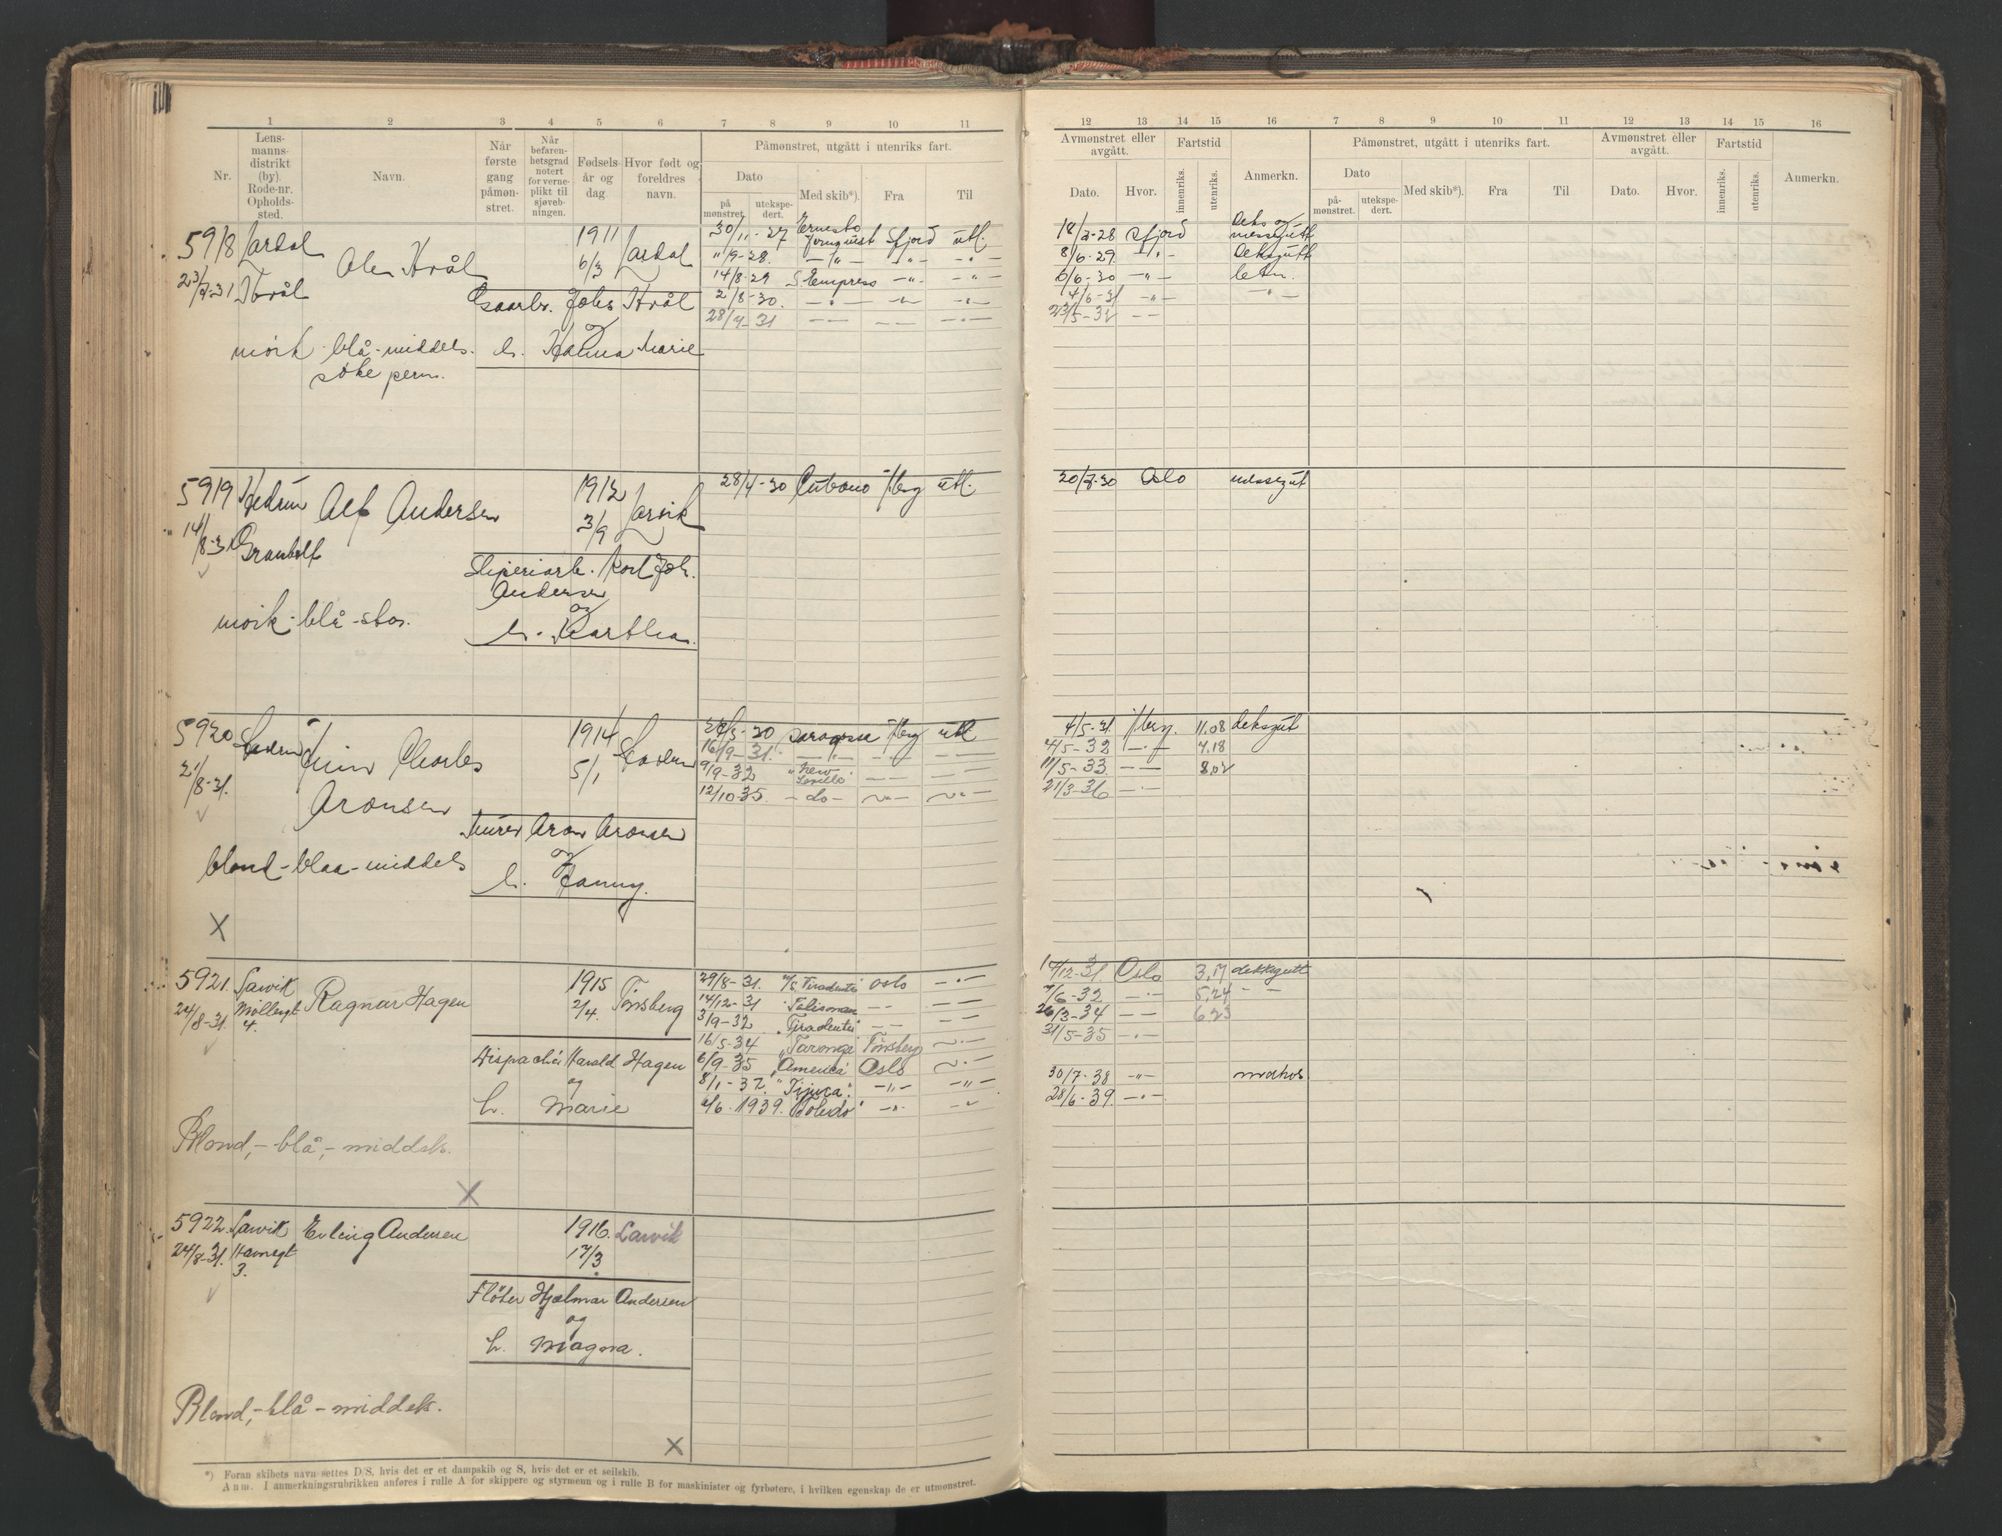 1 2 3 4 5 6 7 8 9 10 11 12 13 14 15 16 7 8 9 10 11 12 13 14 15 16
Nr.
Lens-
manns-
distrikt
(by).
Rode-nr.
Opholds-
sted.
Navn.
Når
første
gang
påmøn-
stret.
Når
befaren-
hetsgrad
notert
for verne-
plikt til
sjøveb-
ningen.
Fødsels-
år og
dag
Hvor født og
foreldres
navn.
Påmønstret, utgått i utenriks fart.
Dato
på
mønstret.
utekspe-
dert.
Med skib*).
Fra
Til
Avmønstret eller
avgått.
Dato.
Hvor.
Fartstid
innenriks.
utenriks.
Anmerkn.
Påmønstret, utgått i utenriks fart.
Dato
på-
mønstret.
utekspe-
dert.
Med skib*).
Fra
Til
Avmønstret eller
avgått.
Dato.
Hvor.
Fartstid
innenriks.
utenriks.
Anmerkn.
5918 Lardal Ole Hvål 1911 6/3 Lardal
Hvål
Johs Hvål
og
h. Hanna Marie
mørk - blå - middels.
30/11-27 Ernesto Sfjord utl.
11/9-28.
14/8-29
2/8-30.
28/7-31
18/2-28 Sfjord
8/6-29. Deksgutt
6/6-30
4/6-31
23/5-32
5919 Hedrum Alf Andersen 1912 3/9 Larvik
14/8-31
Sliperiarb. Karl Joh.
Andersen
og
h. Marthea.
mørk - blå - stor.
28/4-30 Cubano utl.
20/7-30 Oslo messegut
5920 Charles 1914 5/1
21/8-31. Aronsen
Murer Aron Aronsen
og
h. Fanny.
blond - blaa - middels
X
16/9-31.
9/9-32 "New
12/10-35. - do -
4/5-31. 11.08 deksgut
4/5-32 7.18
11/5-33. 8,02
21/3-36
5921. Larvik Ragnar Hagen 1915 2/4. Tønsberg
24/8-31. Møllergt
4.
Harald Hagen
og
h. Marie
Blond, - blå, - middels.
X
29/8-31. Oslo
14/12-31 Talisman
3/9-32 "Tiradentes"
16/5-34 "Taronga" Tønsberg
6/9-35 "America" Oslo
8/1-37. "Tijuca"
2/6.1939. "Toledo"
17/12-31 Oslo 3,17 dekksgutt
7/6-32 5,24
26/3-34 6.23
31/5-35
30/7-38 matros
28/6-39.
5922. Larvik Erling Andersen 1916. Larvik
24/8-31. Havnegt 17/3
3.
Fløter Hjalmar Andersen
og
h. Magna.
Blond, - blå - middels.
X
*) Foran skibets navn settes D/S, hvis det er et dampskib og S, hvis det er et seilskib.
Anm. I anmerkningsrubrikken anføres i rulle A for skippere og styrmenn og i rulle B for maskinister og fyrbøtere, i hvilken egenskap de er utmønstret.